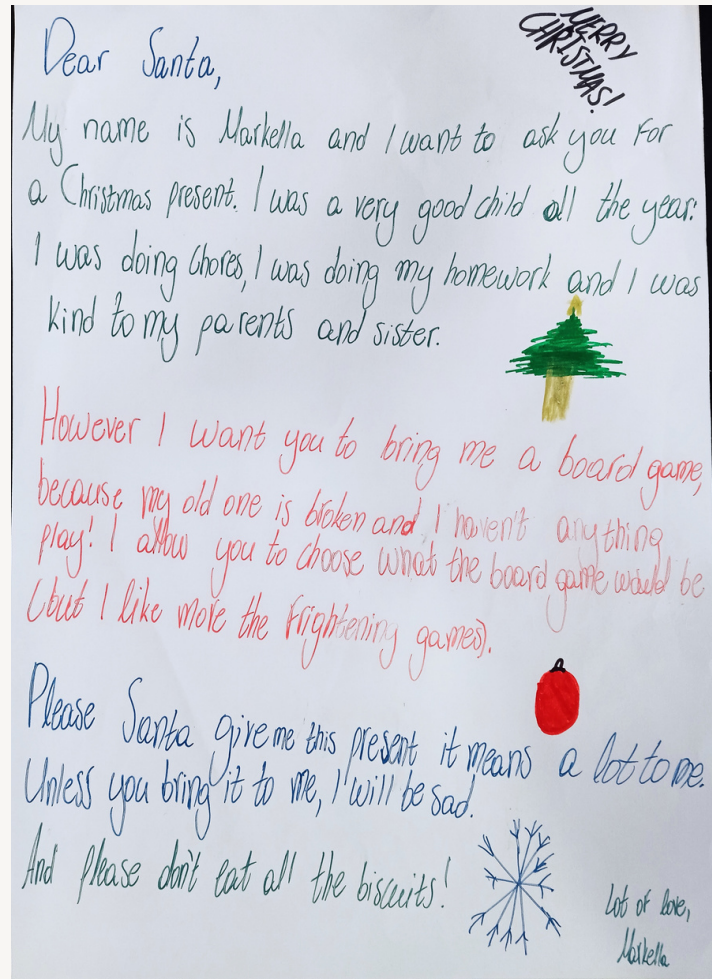 MERRY
CHRISTMAS!
Dear Santa,
My name is Markella and I want to ask you for
a Christmas present. I was a very good child all the year:
I was doing chores, I was doing my homework and I was
kind to my parents and sister.
However I want you to bring me a board game,
because my old one is broken and I haven't anything
play! I allow you to choose what the board game would be
(but I like more the frightening games).
Please Santa give me this present it means a lot to me.
Unless you bring it to me, I will be sad.
And please don't eat all the biscuits!
Lot of love,
Markella